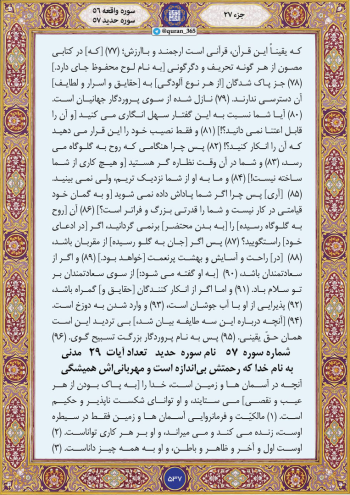 جزء ۲۷
سوره واقعه ۵۶
سوره حدید ۵۷
@quran_365
که یقیناً این قرآن، قرآنی است ارجمند و باارزش؛ (۷۷) [که] در کتابی
مصون از هر گونه تحریف و دگرگونی [به نام لوح محفوظ جای دارد.]
(۷۸) جز پاک شدگان [از هر نوع آلودگی] به [حقایق و اسرار و لطایف]
آن دسترسی ندارند. (۷۹) نازل شده از سوی پروردگار جهانیان است.
(۸۰) آیا شما نسبت به این گفتار سهل انگاری می کنید [و آن را
قابل اعتنا نمی دانید؟!] (۸۱) و فقط نصیب خود را این قرار می دهید
که آن را انکار کنید؟! (۸۲) پس چرا هنگامی که روح به گلوگاه می
رسد، (۸۳) و شما در آن وقت نظاره گر هستید [و هیچ کاری از شما
ساخته نیست!] (۸۴) و ما به او از شما نزدیک تریم، ولی نمی بینید.
(۸۵) [آری] پس چرا اگر شما پاداش داده نمی شوید [و به گمان خود
قیامتی در کار نیست و شما را قدرتی بزرگ و فراتر است؟] (۸۶) آن [روح
به گلوگاه رسیده] را [به بدن محتضر] برنمی گردانید، اگر [در ادعای
خود] راستگویید؟ (۸۷) پس اگر [جان به گلو رسیده] از مقربان باشد،
(۸۸) [در] راحت و آسایش و بهشت پرنعمت [خواهد بود.] (۸۹) و اگر از
سعادتمندان باشد، (۹۰) [به او گفته می شود:] از سوی سعادتمندان بر
تو سلام باد. (۹۱) و اما اگر از انکار کنندگان [حقایق و] گمراه باشد،
(۹۲) پذیرایی از او با آب جوشان است، (۹۳) و وارد شدن به دوزخ است.
(۹۴) [آنچه درباره این سه طایفه بیان شد،] بی تردید این است
همان حقّ یقینی. (۹۵) پس به نام پروردگار بزرگت تسبیح گوی. (۹۶)
شماره سوره ۵۷ نام سوره حدید تعداد آیات ۲۹ مدنی
به نام خدا که رحمتش بی‌اندازه است و مهربانی‌اش همیشگی
آنچه در آسمان ها و زمین است، خدا را [به پاک بودن از هر
عیب و نقصی] می ستایند، و او توانای شکست ناپذیر و حکیم
است. (۱) مالکیّت و فرمانروایی آسمان ها و زمین فقط در سیطره
اوست، زنده می کند و می میراند، و او بر هر کاری تواناست. (۲)
اوست اول و آخر و ظاهر و باطن، و او به همه چیز داناست. (۳)
۵۳۷